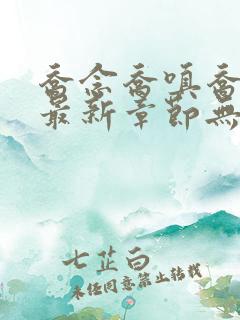 喬念喬嗔喬
最新章節無
七芷白
未经同意禁止转载